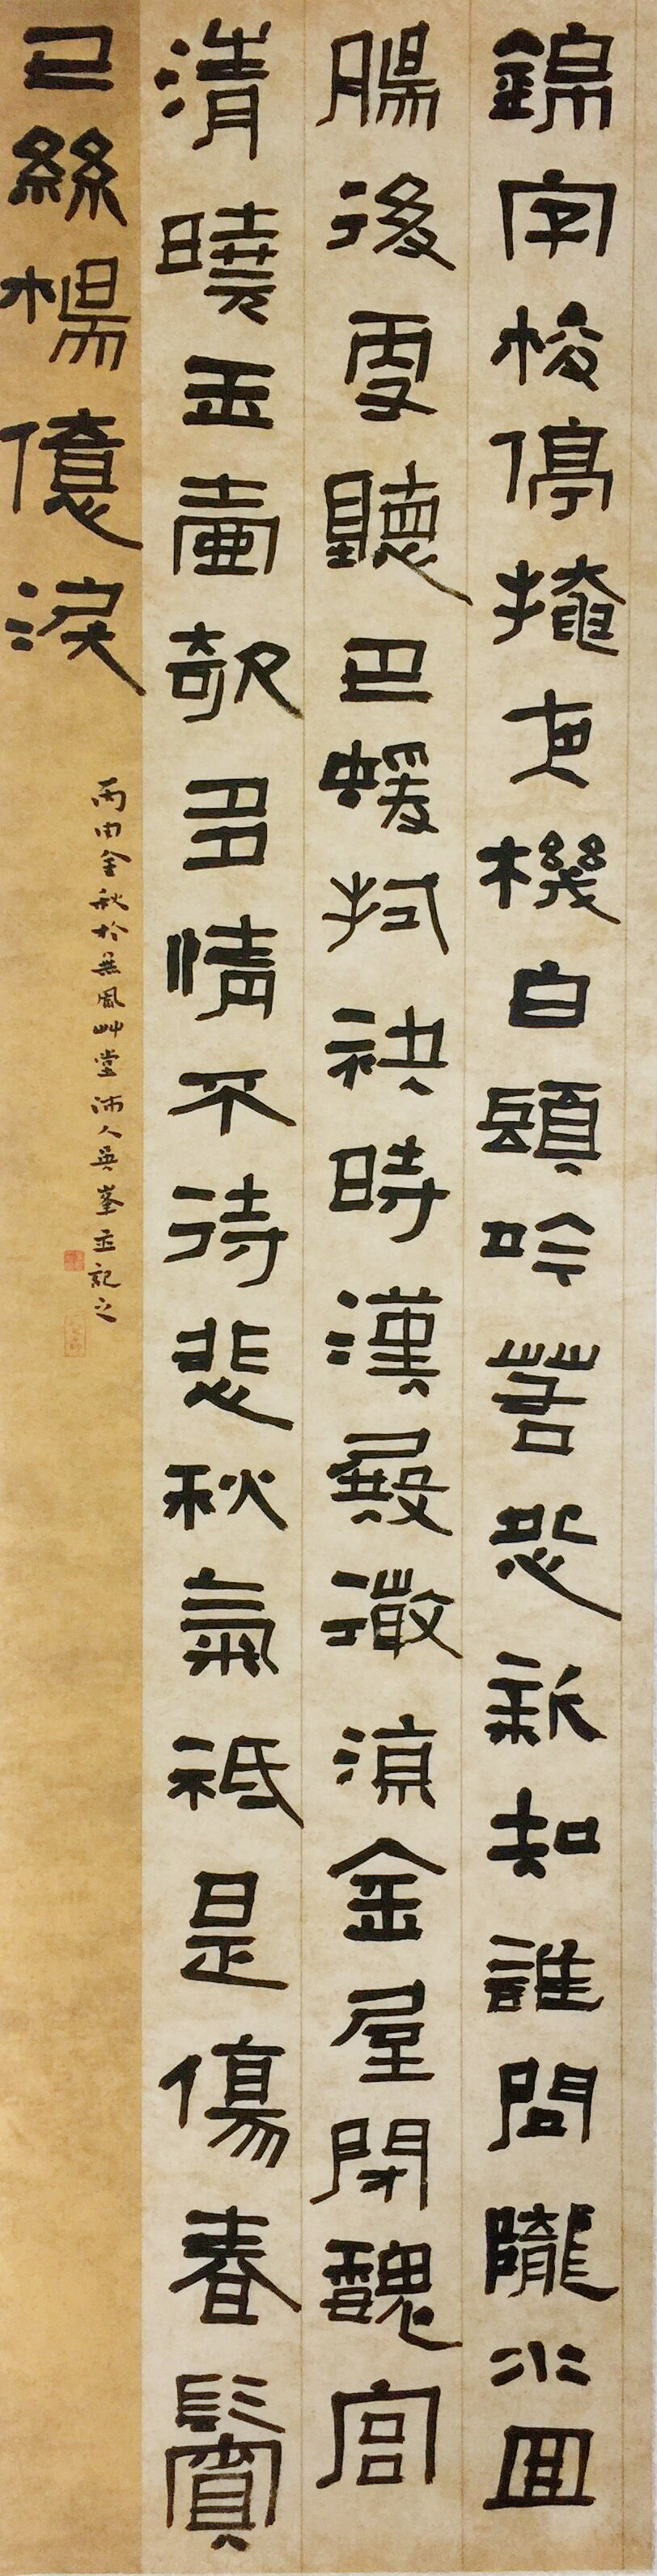 錦字梭停掩夜機白頭吟苦怨新知誰聞隴水回
腸後更聽巴蝯拭袂時漢殿微涼金屋閉魏宮
清曉玉壺欹多情不待悲秋氣祗是傷春鬢
已絲楊億淚
丙申金秋於無風艸堂沛人吳峯並記之